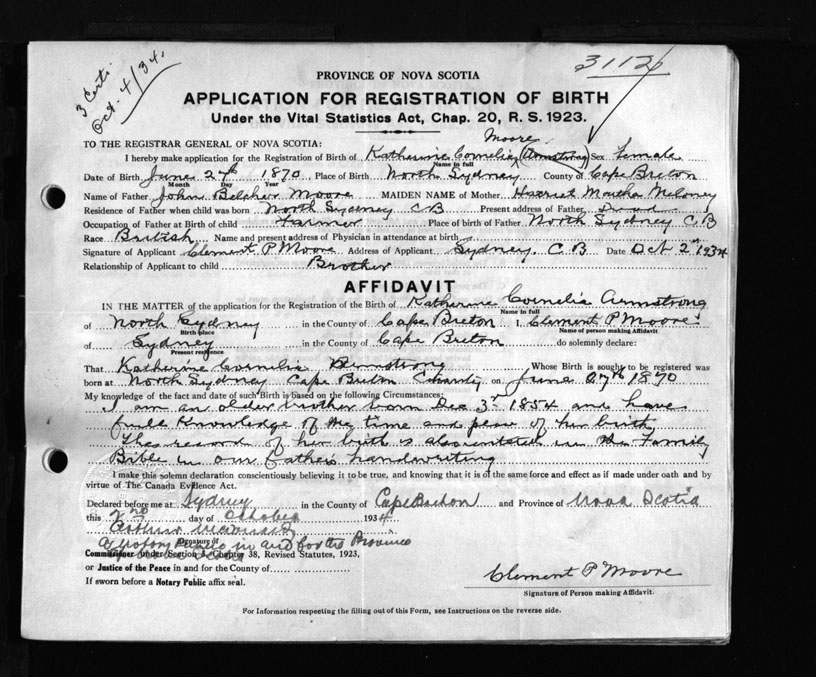 3 Certs.
Oct. 4/34.
3112
PROVINCE OF NOVA SCOTIA
APPLICATION FOR REGISTRATION OF BIRTH
Under the Vital Statistics Act, Chap. 20, R. S. 1923.
Moore
TO THE REGISTRAR GENERAL OF NOVA SCOTIA:
I hereby make application for the Registration of Birth of Katherine Cornelia (Armstrong) Sex Female
Name in full
Date of Birth June 27th 1870 Place of Birth North Sydney County of Cape Breton
Month Day Year
Name of Father John Belcher Moore MAIDEN NAME of Mother Harriet Martha Meloney
Residence of Father when child was born North Sydney C B Present address of Father Dead
Occupation of Father at Birth of child Farmer Place of birth of Father North Sydney C B
Race British Name and present address of Physician in attendance at birth
Signature of Applicant Clement P Moore Address of Applicant Sydney. C. B Date Oct 2nd 1934
Relationship of Applicant to child Brother
AFFIDAVIT
IN THE MATTER of the application for the Registration of the Birth of Katherine Cornelia Armstrong
Name in full
of North Sydney in the County of Cape Breton I, Clement P Moore
Birth place Name of person making Affidavit
of Sydney in the County of Cape Breton do solemnly declare:
Present residence
That Katherine Cornelia Armstrong Whose Birth is sought to be registered was
born at North Sydney Cape Breton County on June 27th 1870
My knowledge of the fact and date of such Birth is based on the following Circumstances:
I am an older brother born Dec 3rd 1854 and have
full knowledge of the time and place of her birth
The record of her birth is also entered in the Family
Bible in our father's handwriting
I make this solemn declaration conscientiously believing it to be true, and knowing that it is of the same force and effect as if made under oath and by
virtue of The Canada Evidence Act.
Declared before me at Sydney in the County of Cape Breton and Province of Nova Scotia
this 2nd day of October 1934
Arthur
Signature of
A Notary Public in and for the Province
Commissioner under Section 3, Chapter 38, Revised Statutes, 1923,
or Justice of the Peace in and for the County of
If sworn before a Notary Public affix seal.
Clement P Moore
Signature of Person making Affidavit.
For Information respecting the filling out of this Form, see Instructions on the reverse side.